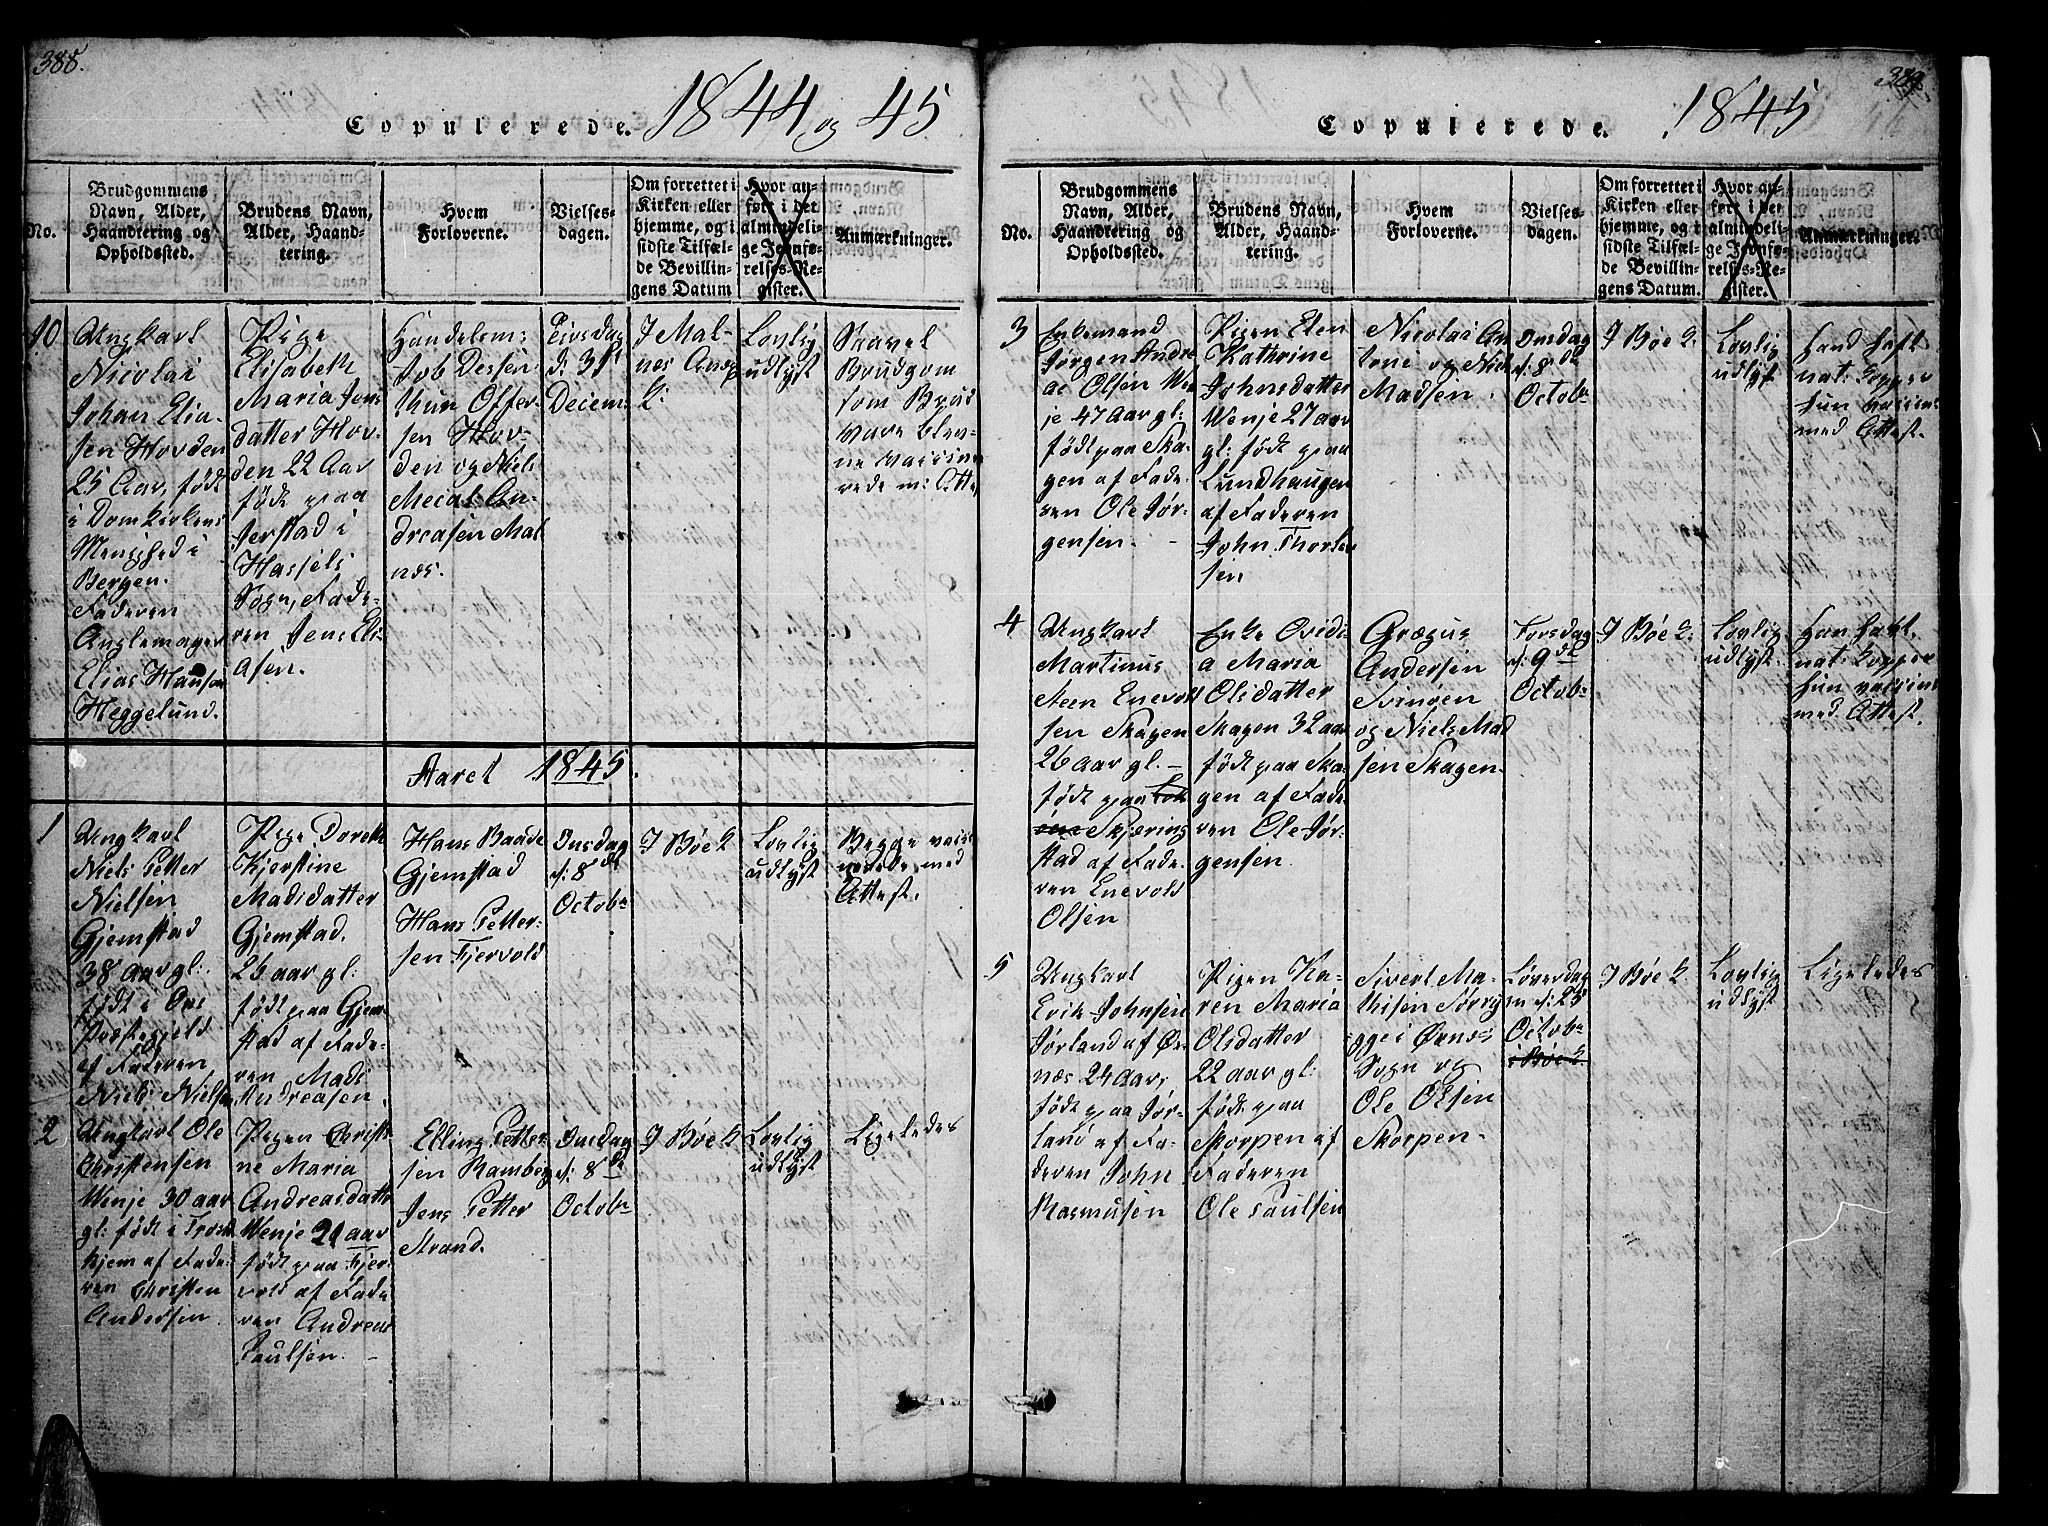 388.
Copulerede. 1844 og 45
No.
Brudgommens
Navn, Alder,
Haandtering og
Opholdssted.
Brudens Navn,
Alder, Haand-
tering.
Hvem
Forloverne.
Vielses-
dagen.
Om forrettet i
Kirken eller
hjemme, og i
sidste Tilfæl-
de Bevillin-
gens Datum
Hvor an-
ført i det
almindeli-
ge Jevnfø-
relses-Re-
gister.
Anmærkninger.
10
Ungkarl
Nicolai
Johan Elia-
sen Hovden
25 Aar, født
i Domkirkens
Menighed i
Bergen.
Faderen
Anglemager
Elias Hansen
Heggelund.
Pige
Elisabeth
Maria Jens
datter Hov-
den 22 Aar
født paa
Jerstad i
Hassels
Sogn, Fade-
ren Jens Eli-
asen.
Handelsm:
Job Dessen-
thun Offer-
sen Hov-
den og Niels
Meial: An-
dreasen Mal
næs.
Tirsdag
d: 31
Decem:
I Mal-
næs
K:
Lovlig
udlyst
Saavel
Brudgom
som Brud
vare blev-
ne vaccine
rede m: Atte
Aaret 1845.
1
Ungkarl
Niels Petter
Nielsen
Gjemstad
38 aar gl:
født i
Præstegjeld
af Faderen
Niels Nielsen
Pige Doreth
Kjerstine
Madsdatter
Gjemstad.
26 aar gl:
født paa Gjem-
stad af Fade-
ren Mads
Andreasen.
Hans Baade
Gjemstad
Hans Petter-
sen Fjervold
Onsdag
d: 8de
Octobr
I Bøe K
Lovlig
udlyst
Begge vacci
nerede med
Attest.
2
Ungkarl Ole
Christensen
Wenje 30 aar
gl: født i Trond
hjem af Fade-
ren Christen
Andersen
Pigen Christi-
ne Maria
Andreasdatter
Wenje 21 aar
født paa Fjer-
vold af Fade
ren Andreas
Paulsen. -
Elling Petter
sen Ramberg
Jens Petter
Strand.
Onsdag
d: 8de
Octobr
I Bøe K
Lovlig
udlyst
Ligeledes
389.
Copulerede. 1845
No.
Brudgommens
Navn, Alder,
Haandtering og
Opholdssted.
Brudens Navn,
Alder, Haand-
tering.
Hvem
Forloverne.
Vielses-
dagen.
Om forrettet i
Kirken eller
hjemme, og i
sidste Tilfæl-
de Bevillin-
gens Datum.
Hvor an-
ført i det
almindeli-
ge Jevnfø-
relses-Re-
gister.
Anmærkninger.
3
Enkemand
Jørgen Andre
as Olsen We
je 47 Aar gl:
født paa Ska-
gen af Fade-
ren Ole Jør-
gensen. -
Pigen Elen
Kathrine
Johnsdatter
Wenje 27 aar
gl: født paa
Lundhaugen
af Faderen
John Thorle
sen
Nicolai An
toni og Niels
Madsen.
Onsdag
d: 8de
Octobr
I Bøe K.
Lovlig
udlyst
Hand haft
nat: Kopper
hun vaccine
med Attest.
4
Ungkarl
Martinus
Steen Enevold
sen Skagen
26 aar gl. -
født paa
Skjæring
stad af Fade-
ren Enevold
Olsen
Enke Ovidi-
a Maria
Olsdatter
Skagen 32 aar
født paa Ska-
gen af Fade-
ren Ole Jør-
gensen.
Grægus
Andersen
Svinøen
og Niels Mad
sen Skagen.
Torsdag
d: 9de
Octobr
I Bøe K.
Lovlig
udlyst.
Han havt.
nat: Kopper
hun vaccine
med Attest.
5
Ungkarl
Erik Johnsen
Jørland af Øx-
næs 24 aar,
født paa Jør-
land af Fa-
deren John
Rasmusen
Pigen Ka-
ren Maria
Olsdatter
22 aar gl:
født paa
Skorpen af
Faderen
Ole Paulsen
Sivert Ma-
thisen Sørry
gge i Øxnes
Sogn og
Ole Olsen
Skorpen-
Løverdag
d: 25
Octobr
i Bøe K
I Bøe K.
Lovlig
udlyst
Ligeledes